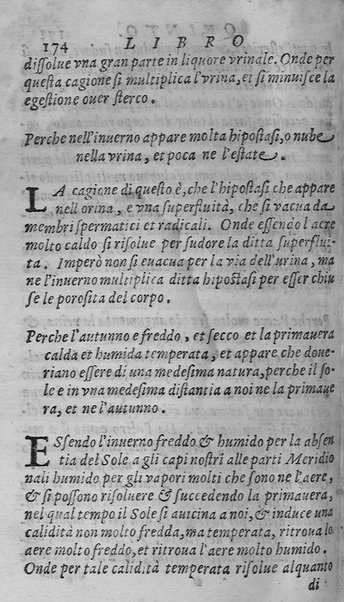 174 LIBRO
dissolue vna gran parte in liquore vrinale. Onde per
questa cagione si multiplica l'vrina, et si minuisce la
egestione ouer sterco.
Perche nell'inuerno appare molta hipostasi, o nube
nella vrina, et poca ne l'estate.
LA cagione di questo è, che l'hipostasi che appare
nell'orina, e vna superfluità, che si vacua da
membri spermatici et radicali. Onde essendo l'aere
molto caldo si risolue per sudore la ditta superflui
ta. Imperò non si euacua per la via dell'urina, ma
ne l'inuerno multiplica ditta hipostasi per esser chiu
se le porosita del corpo.
Perche l'autunno e freddo, et secco et la primauera
calda et humida temperata, et appare che doue-
riano essere di una medesima natura, perche il so-
le e in vna medesima distantia a noi ne la primaue
ra, et ne l'autunno.
ESsendo l'inuerno freddo & humido per la absen
tia del Sole a gli capi nostri alle parti Meridio
nali humido per gli vapori molti che sono ne l'aere,
& si possono risoluere & succedendo la primauera,
nel qual tempo il Sole si auicina a noi, & induce una
calidità non molto fredda, ma temperata, ritroua lo
aere molto freddo, et ritroua l'aere molto humido.
Onde per tale calidità temperata risolue alquanto
di